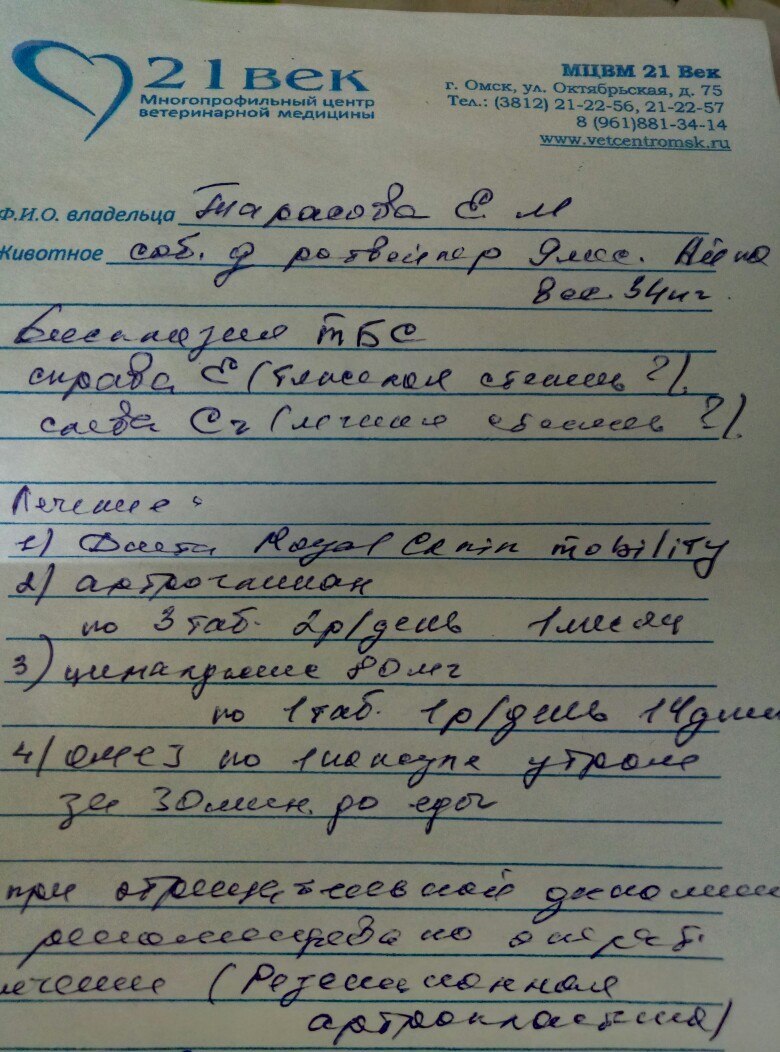 21 век
Многопрофильный центр
ветеринарной медицины
МЦВМ 21 Век
г. Омск, ул. Октябрьская, д. 75
Тел.: (3812) 21-22-56, 21-22-57
8 (961)881-34-14
www.vetcentromsk.ru
Ф.И.О. владельца Тарасова Е М
Животное соб. д ротвейлер 9мес. Айна
Вес 34кг.
Дисплазия ТБС
справа Е (тяжелая степень?).
слева С2 (легкая степень?).
Лечение:
1) Диета Royal Canin mobility
2) артрогликан
по 3 таб. 2р/день 1 месяц
3) цимальджекс 80мг
по 1 таб. 1р/день 14 дне
4) омез по 1 капсуле утром
за 30 мин. до еды
при отрицательной динамики
рекомендовано операт.
лечение (Резекционная
артропластика)